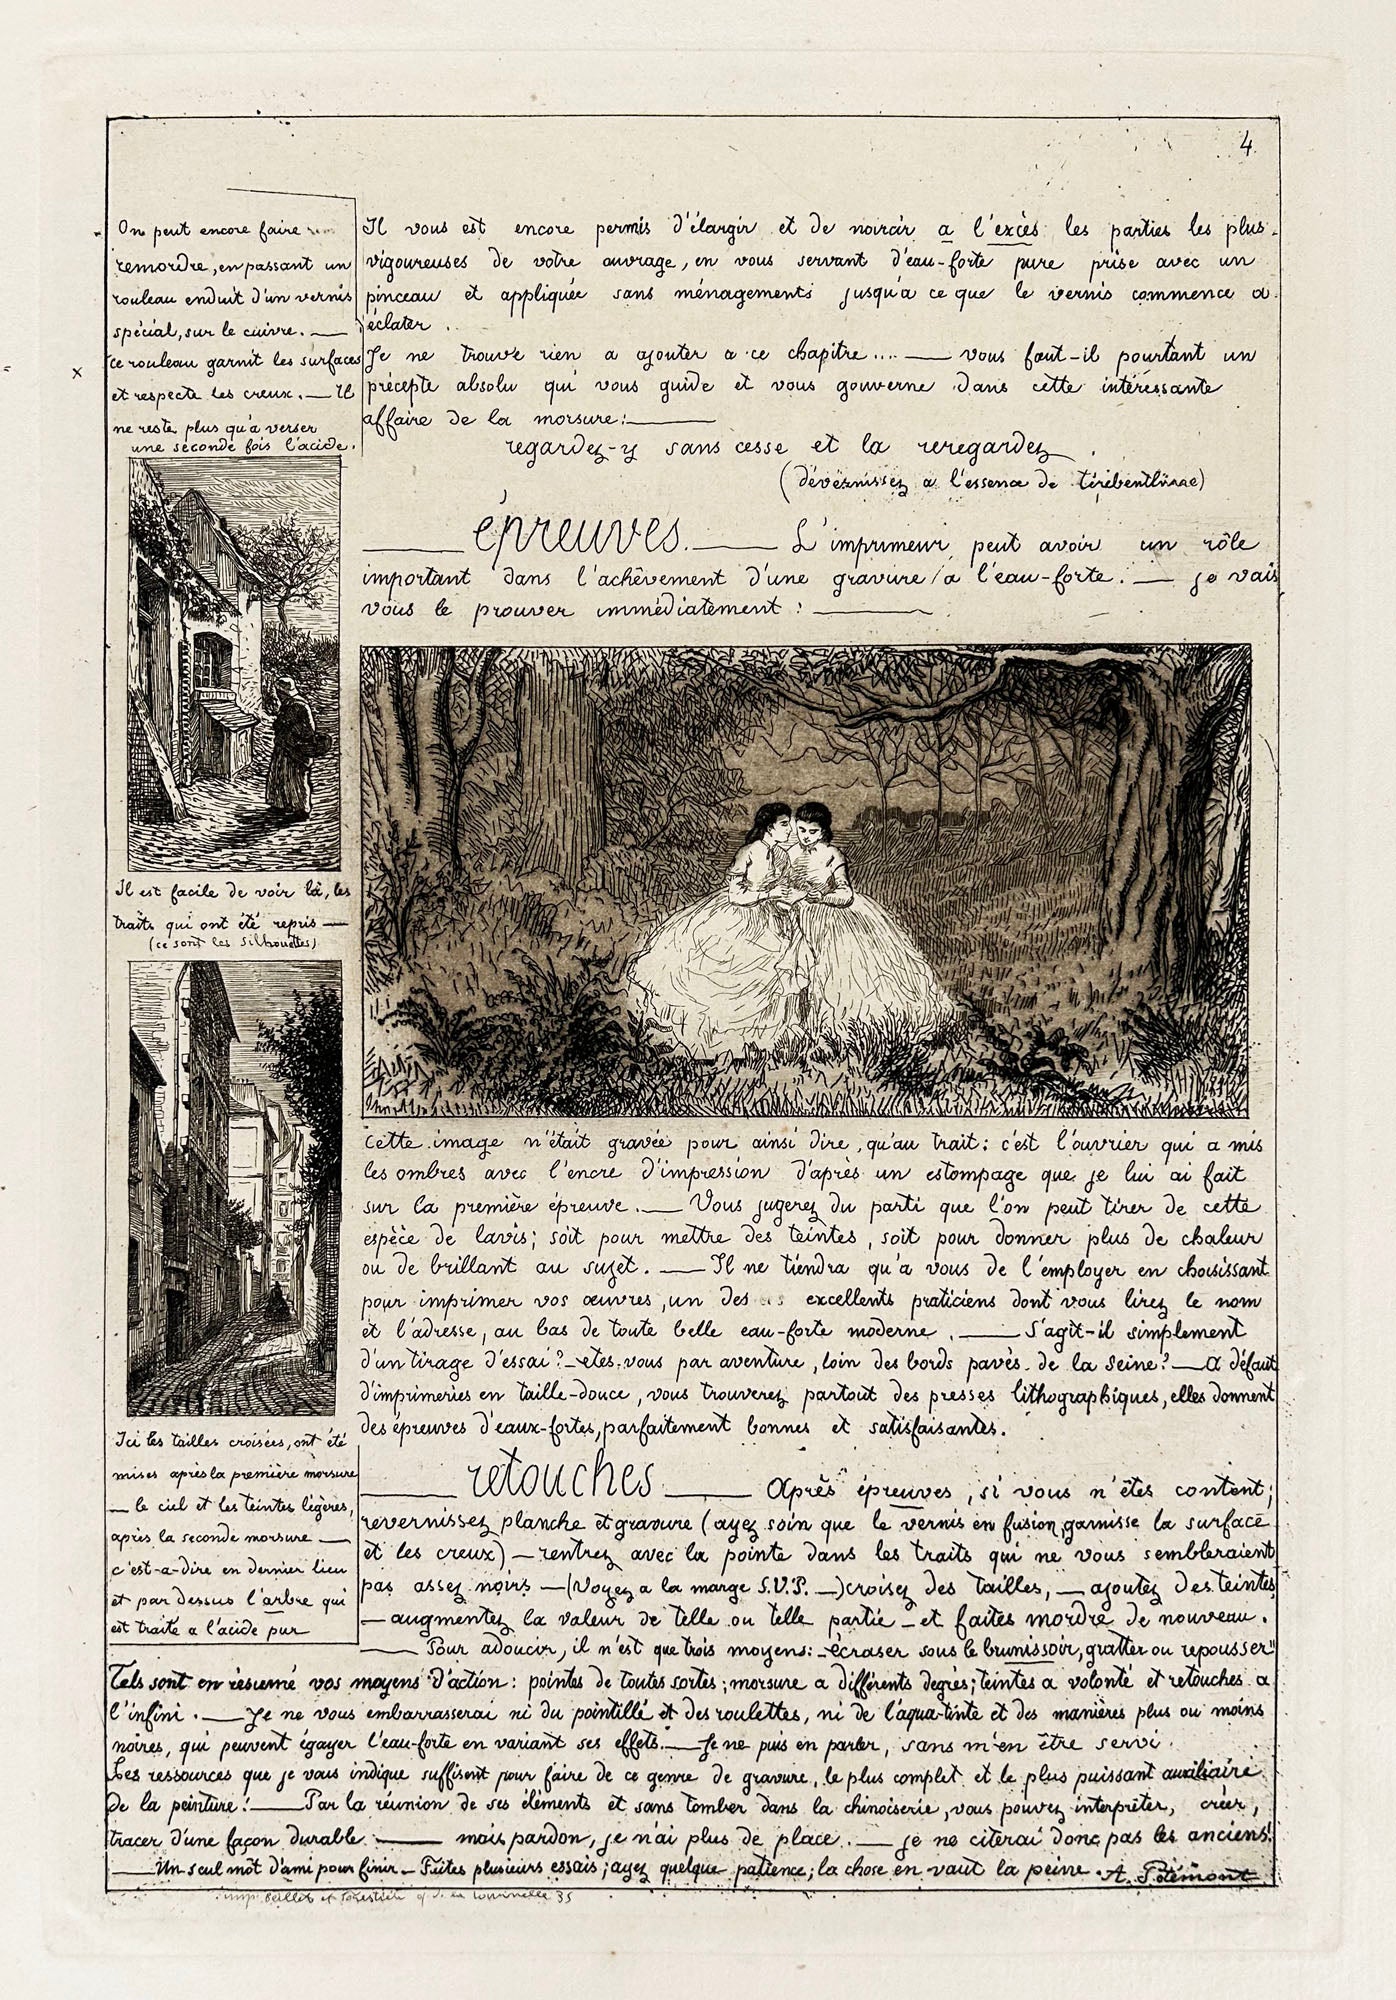 4
On peut encore faire
remordre, en passant un
rouleau enduit d'un vernis
spécial, sur le cuivre. —
ce rouleau garnit les surfaces
et respecte les creux. — Il
ne reste plus qu'à verser
une seconde fois l'acide.
Il est facile de voir là, les
traits qui ont été repris —
(ce sont les silhouettes)
Ici les tailles croisées, ont été
mises après la première morsure
— le ciel et les teintes légères,
après la seconde morsure —
c'est-a-dire en dernier lieu
et par dessus l'arbre qui
est traité a l'acide pur
Il vous est encore permis d'élargir et de noircir a l'excès les parties les plus
vigoureuses de votre ouvrage, en vous servant d'eau-forte pure prise avec un
pinceau et appliquée sans ménagements jusqu'a ce que le vernis commence a
éclater.
Je ne trouve rien a ajouter a ce chapitre.... — vous faut-il pourtant un
précepte absolu qui vous guide et vous gouverne dans cette intéressante
affaire de la morsure: —
regardez-y sans cesse et la reregardez.
(dévernissez a l'essence de térébenthine)
— épreuves. — L'imprimeur peut avoir un rôle
important dans l'achêvement d'une gravure a l'eau-forte. — je vais
vous le prouver immédiatement: —
cette image n'était gravée pour ainsi dire, qu'au trait: c'est l'ouvrier qui a mis
les ombres avec l'encre d'impression d'après un estompage que je lui ai fait
sur la première épreuve. — Vous jugerez du parti que l'on peut tirer de cette
espèce de lavis; soit pour mettre des teintes, soit pour donner plus de chaleur
ou de brillant au sujet. — Il ne tiendra qu'à vous de l'employer en choisissant
pour imprimer vos œuvres, un des excellents praticiens dont vous lirez le nom
et l'adresse, au bas de toute belle eau-forte moderne. — S'agit-il simplement
d'un tirage d'essai? — etes-vous par aventure, loin des bords pavés de la Seine? — A défaut
d'imprimeries en taille-douce, vous trouverez partout des presses lithographiques, elles donnent
des épreuves d'eaux-fortes, parfaitement bonnes et satisfaisantes.
— retouches — Après épreuves, si vous n'êtes content;
revernissez planche et gravure (ayez soin que le vernis en fusion, garnisse la surface
et les creux) — rentrez avec la pointe dans les traits qui ne vous sembleraient
pas assez noirs — (Voyez a la marge S.V.P. —) croisez des tailles, — ajoutez des teintes
— augmentez la valeur de telle ou telle partie — et faites mordre de nouveau.
— Pour adoucir, il n'est que trois moyens: — écraser sous le brunissoir, gratter ou repousser!!
Tels sont en résumé vos moyens d'action: pointes de toutes sortes; morsure a différents degrés; teintes a volonté et retouches a
l'infini. — Je ne vous embarrasserai ni du pointillé et des roulettes, ni de l'aqua-tinte et des manières plus ou moins
noires, qui peuvent égayer l'eau-forte en variant ses effets. — Je ne puis en parler, sans m'en être servi.
Les ressources que je vous indique suffisent pour faire de ce genre de gravure, le plus complet et le plus puissant auxiliaire
de la peinture! — Par la réunion de ses éléments et sans tomber dans la chinoiserie, vous pouvez interpréter, créer,
tracer d'une façon durable — mais pardon, je n'ai plus de place. — je ne citerai donc pas les anciens!
— Un seul mot d'ami pour finir. — Faites plusieurs essais; ayez quelque patience; la chose en vaut la peine. A. Potémont